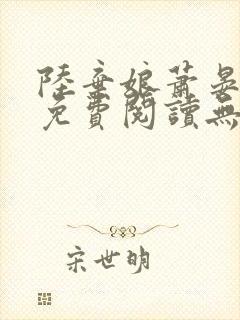 陸棄娘蕭晏
免費閱讀無
宋世明